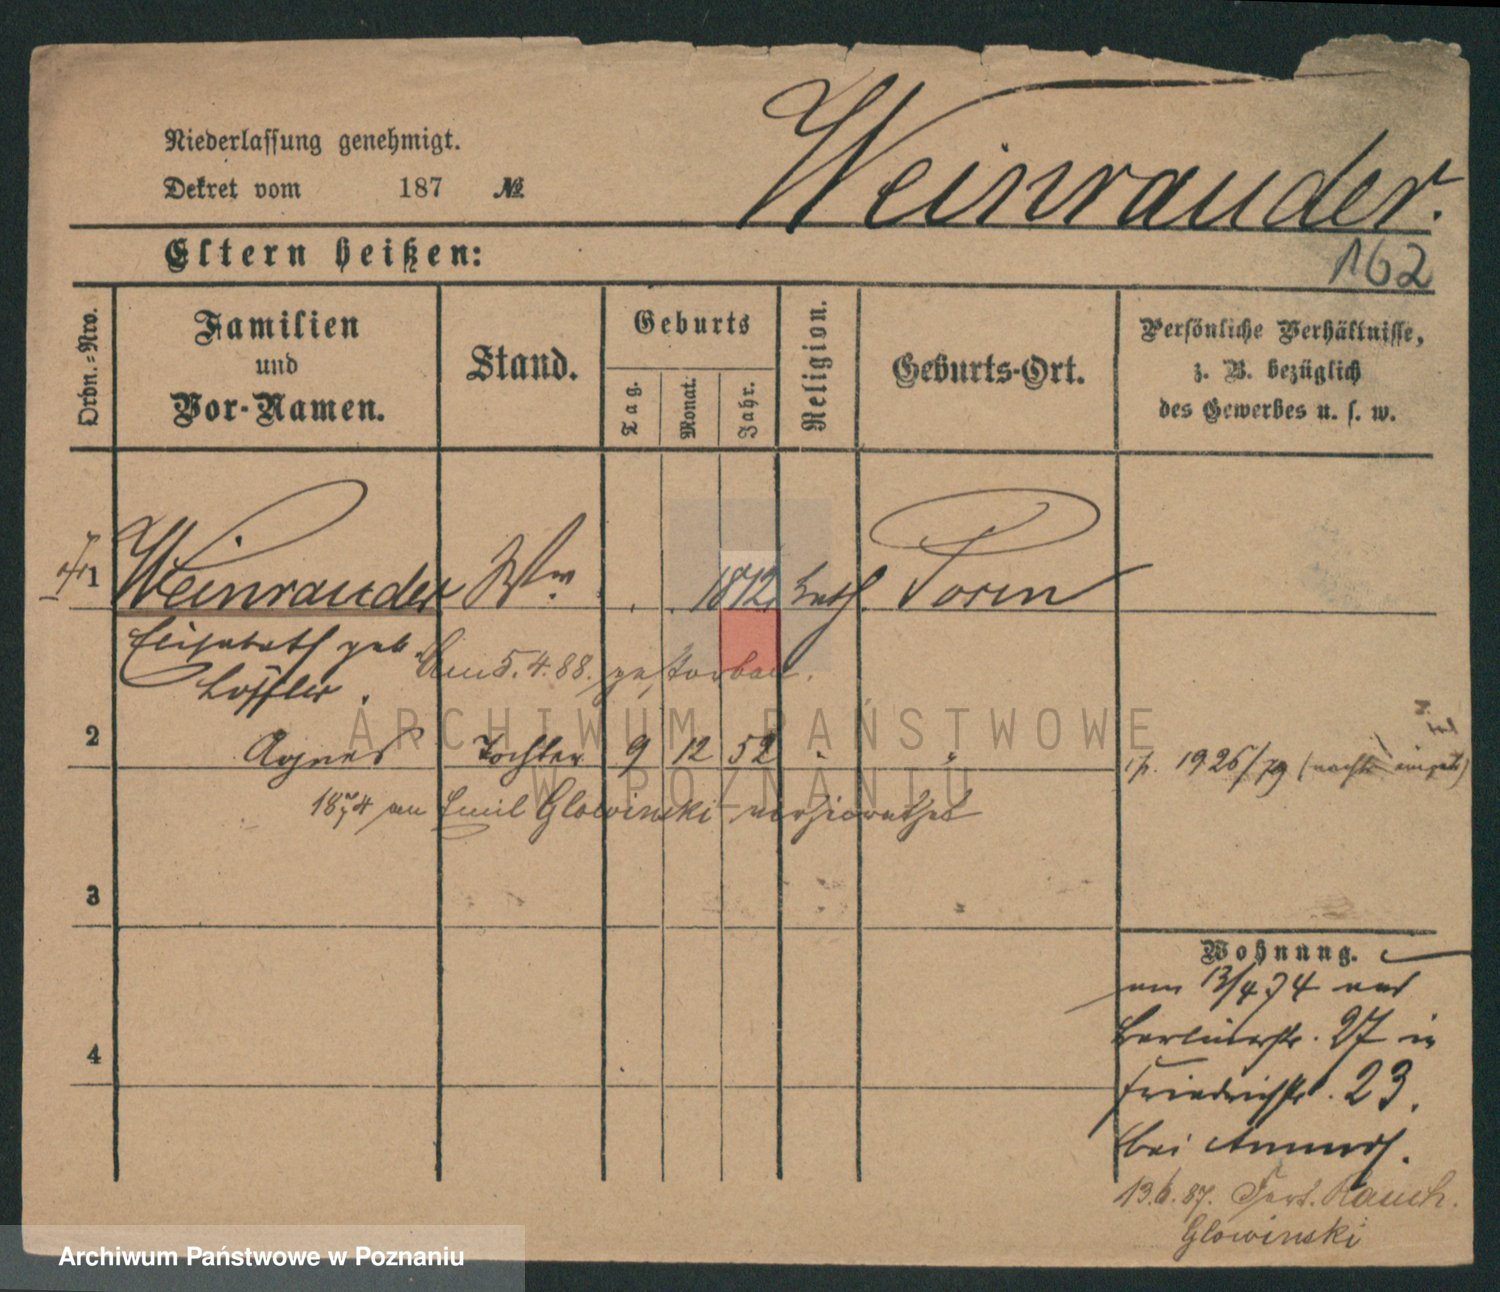 Weinrauder.
Niederlassung genehmigt.
Dekret vom 187 №
162
Eltern heißen:
Ordn.=Nro.
Familien
und
Vor-Namen.
Stand.
Geburts
Tag.
Monat.
Jahr.
Religion.
Geburts-Ort.
Persönliche Verhältnisse,
z. B. bezüglich
des Gewerbes u. s. w.
1 Weinrauder Ww 1812 kath. Posen
Elisabeth geb.
Löffler.
Am 5.4.88. gestorben.
2 Agnes Tochter 9 12 52 " "
1926/79
1874 an Emil Glowinski verheirathet
3
4
Wohnung.
am 13/4 74 von
Berlinerstr. 27 in
Friedrichstr. 23.
bei
13.6.87. Rauch.
Glowinski
ARCHIWUM PAŃSTWOWE
W POZNANIU
Archiwum Państwowe w Poznaniu